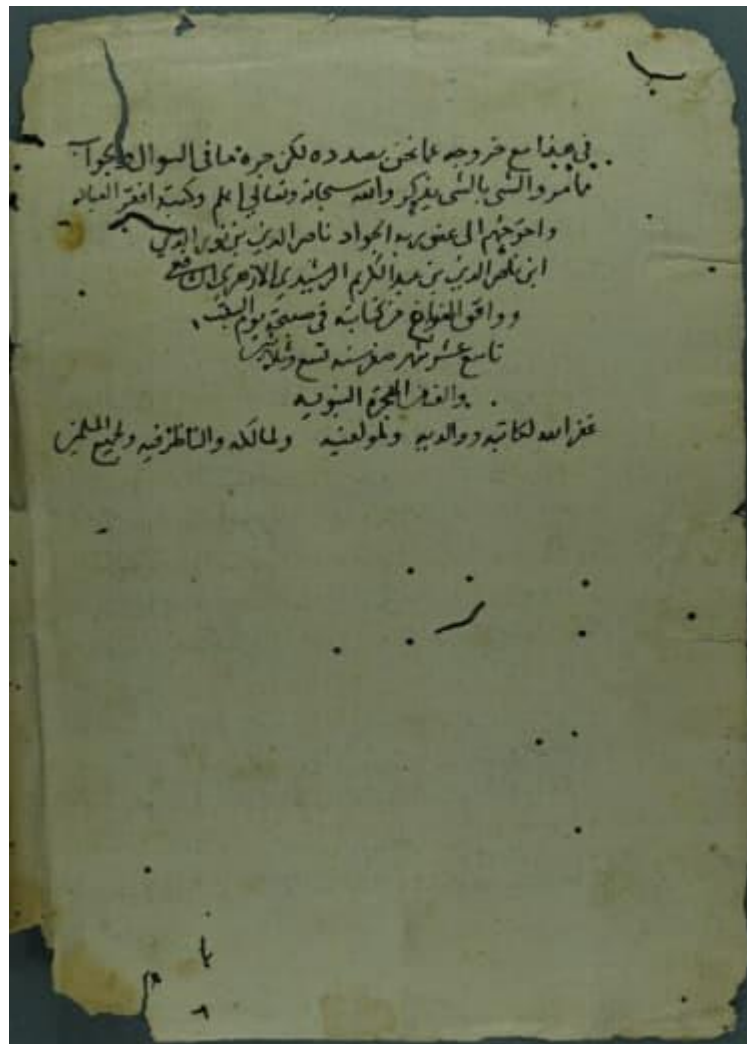 في هذا مع خروجه عما نحن بصدده لكن جره ما في السوال والجواب
مما مر والشي بالشي يذكر والله سبحانه وتعالى اعلم وكتبه افقر العباد
واحوجهم الى عفو ربه الجواد ناصر الدين بن نور الدين
ابن ناصر الدين بن عبد الكريم الرشيدي الازهري الشافعي
ووافق الفراغ من كتابته في صبيحة يوم السبت
تاسع عشر شهر صفر سنه تسع وثلاثين
والف من الهجرة النبويه
غفر الله لكاتبه ووالديه ولمولفيه ولمالكه والناظر فيه ولجميع المسلمين